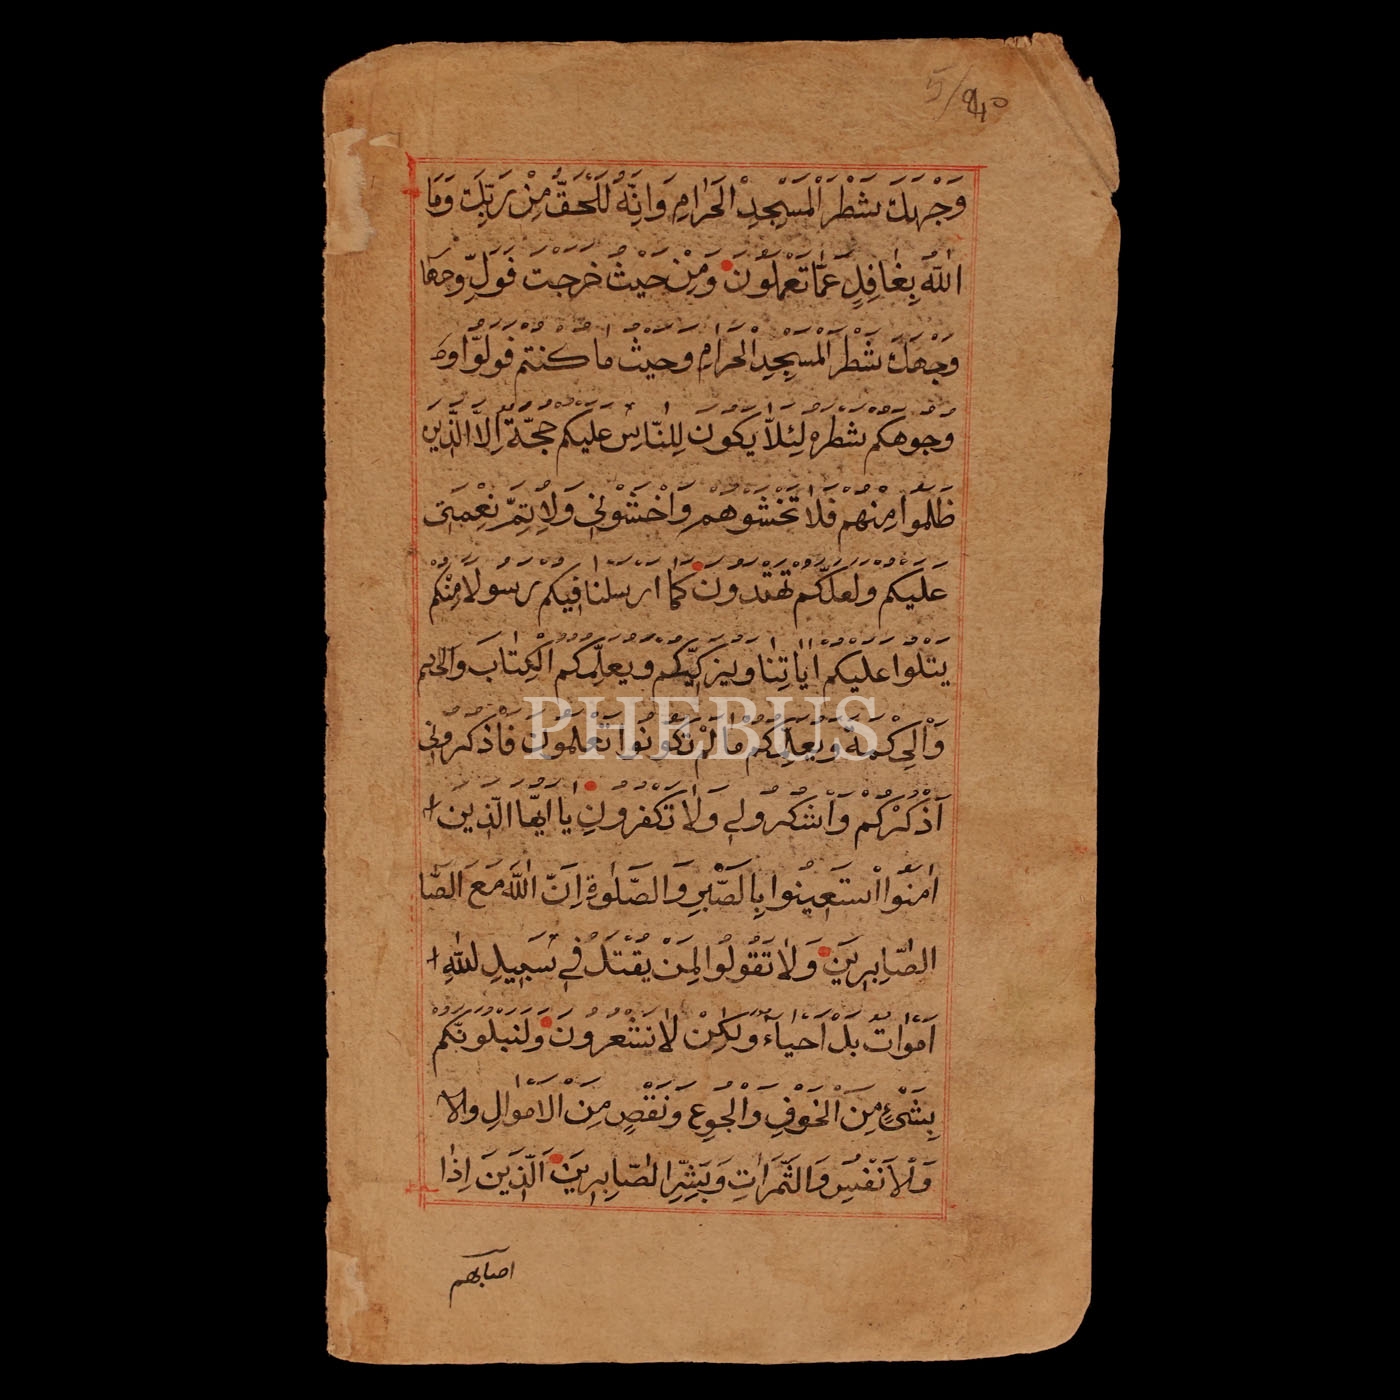 5/40
وَجْهَكَ شَطْرَ الْمَسْجِدِ الْحَرَامِ وَاِنَّهُ لَلْحَقُّ مِنْ رَبِّكَ وَمَا
اللّٰهُ بِغَافِلٍ عَمَّا تَعْمَلُوْنَ وَمِنْ حَيْثُ خَرَجْتَ فَوَلِّ وجهكا
وَجْهَكَ شَطْرَ الْمَسْجِدِ الْحَرَامِ وَحَيْثُ مَا كُنْتُمْ فَوَلُّوْا وط
وُجُوْهَكُمْ شَطْرَهُ لِئَلَّا يَكُوْنَ لِلنَّاسِ عَلَيْكُمْ حُجَّةٌ اِلَّا الَّذِيْنَ
ظَلَمُوْا مِنْهُمْ فَلَا تَخْشَوْهُمْ وَاخْشَوْنِيْ وَلِاُتِمَّ نِعْمَتِيْ
عَلَيْكُمْ وَلَعَلَّكُمْ تَهْتَدُوْنَ كَمَا اَرْسَلْنَا فِيْكُمْ رَسُوْلًا مِنْكُمْ
يَتْلُوْا عَلَيْكُمْ اٰيَاتِنَا وَيُزَكِّيْكُمْ وَيُعَلِّمُكُمُ الْكِتَابَ والحكم
وَالْحِكْمَةَ وَيُعَلِّمُكُمْ مَا لَمْ تَكُوْنُوْا تَعْلَمُوْنَ فَاذْكُرُوْنِيْ
اَذْكُرْكُمْ وَاشْكُرُوْلِيْ وَلَا تَكْفُرُوْنِ يَا اَيُّهَا الَّذِيْنَ ا
اٰمَنُوا اسْتَعِيْنُوْا بِالصَّبْرِ وَالصَّلٰوةِ اِنَّ اللّٰهَ مَعَ الصَّا
الصَّابِرِيْنَ وَلَا تَقُوْلُوْا لِمَنْ يُقْتَلُ فِيْ سَبِيْلِ لله ا
اَمْوَاتٌ بَلْ اَحْيَاءٌ وَلٰكِنْ لَا تَشْعُرُوْنَ وَلَنَبْلُوَنَّكُمْ
بِشَيْءٍ مِنَ الْخَوْفِ وَالْجُوْعِ وَنَقْصٍ مِنَ الْاَمْوَالِ والا
وَلْاَنْفُسِ وَالثَّمَرَاتِ وَبَشِّرِ الصَّابِرِيْنَ الَّذِيْنَ اِذَا
اصابهم
PHEBUS